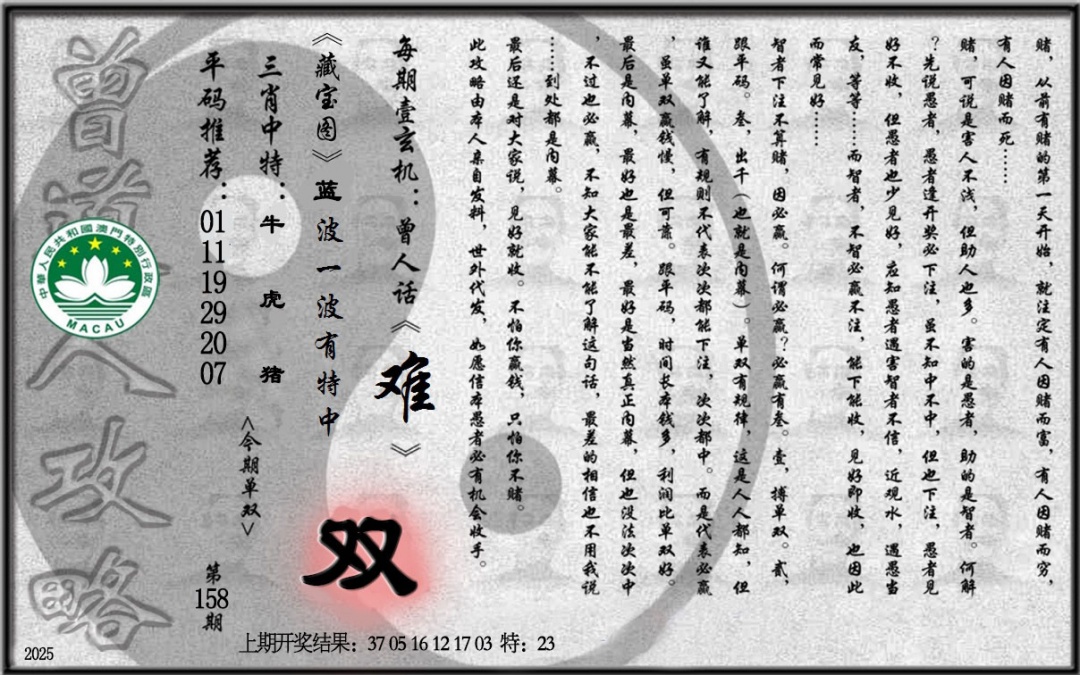 赌，从前有赌的第一天开始，就注定有人因赌而富，有人因赌而穷，
有人因赌而死……
赌，可说是害人不浅，但助人也多。害的是愚者，助的是智者。何解
？先说愚者，愚者逢开奖必下注，虽不知中不中，但也下注，愚者见
好不收，但愚者也少见好，应知愚者遇害智者不信，近观水，遇愚当
友，等等……而智者，不智必赢不注，能下能收，见好即收，也因此
而常见好……
智者下注不算赌，因必赢。何谓必赢？必赢有叁。壹，搏单双。贰，
跟平码。叁，出千（也就是内幕）。单双有规律，这是人人都知，但
谁又能了解，有规则不代表次次都能下注，次次都中。而是代表必赢
，虽单双赢钱慢，但可靠。跟平码，时间长本钱多，利润比单双好。
最后是内幕，最好也是最差，最好是当然真正内幕，但也没法次次中
，不过也必赢，不知大家能不能了解这句话，最差的相信也不用我说
……到处都是内幕。
最后还是对大家说，见好就收。不怕你赢钱，只怕你不赌。
此攻略由本人亲自发料，世外代发，如愿信本愚者必有机会收手。
每期壹玄机：曾人话《难》
《藏宝图》蓝波一波有特中
双
三肖中特：牛虎猪
<今期单双>
平码推荐：01 11 19 29 20 07
第158期
曾道人攻略
中華人民共和國澳門特別行政區
MACAU
上期开奖结果：37 05 16 12 17 03 特：23
2025